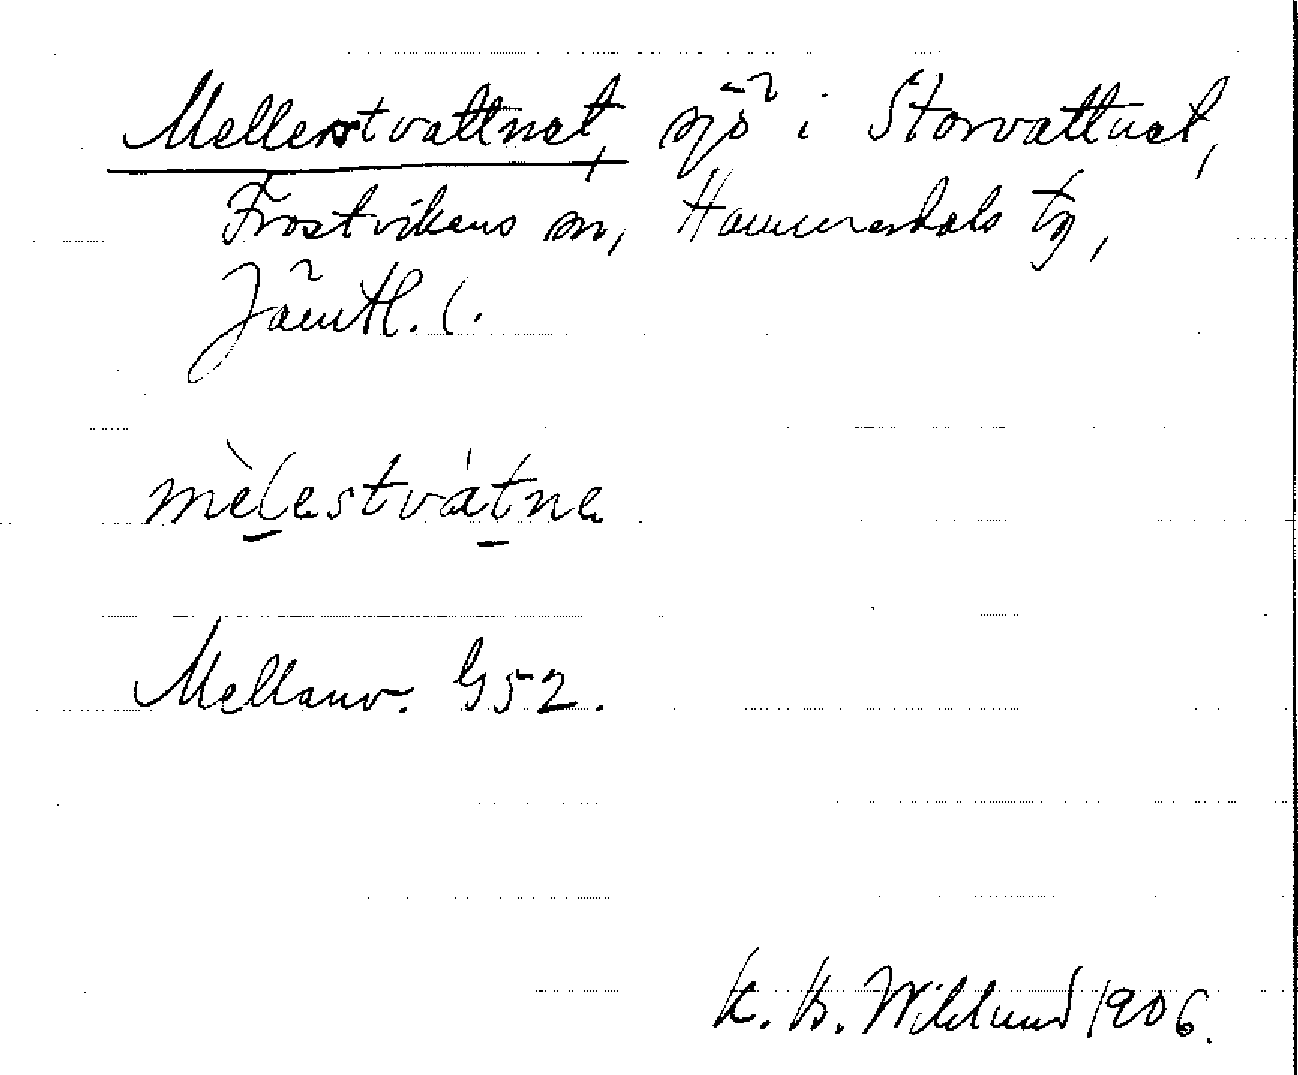 Mellerstvattnet, sjö i Storvattnet,
Frostvikens sn, Hammerdals tg,
Jämtl. l.
mèlestvátne
Mellanv. G52.
K. B. Wiklund 1906.